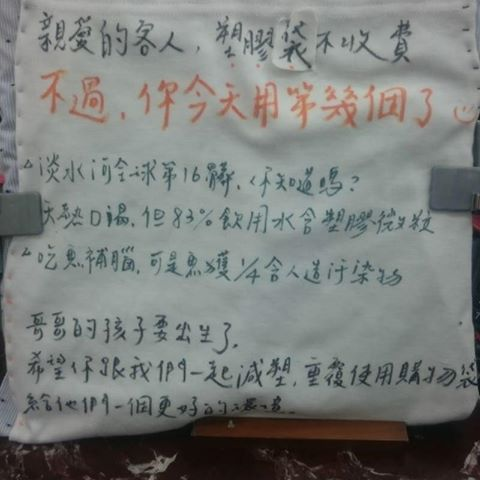 親愛的客人,塑膠袋不收費
不過,你今天用第幾個了
淡水河全球第16髒,你知道嗎?
天熱口渴,但83%飲用水含塑膠微粒
吃魚補腦,可是魚獲1/4含人造汙染物
哥哥的孩子要出生了,
希望你跟我們一起減塑,重覆使用購物袋
給他們一個更好的環境.